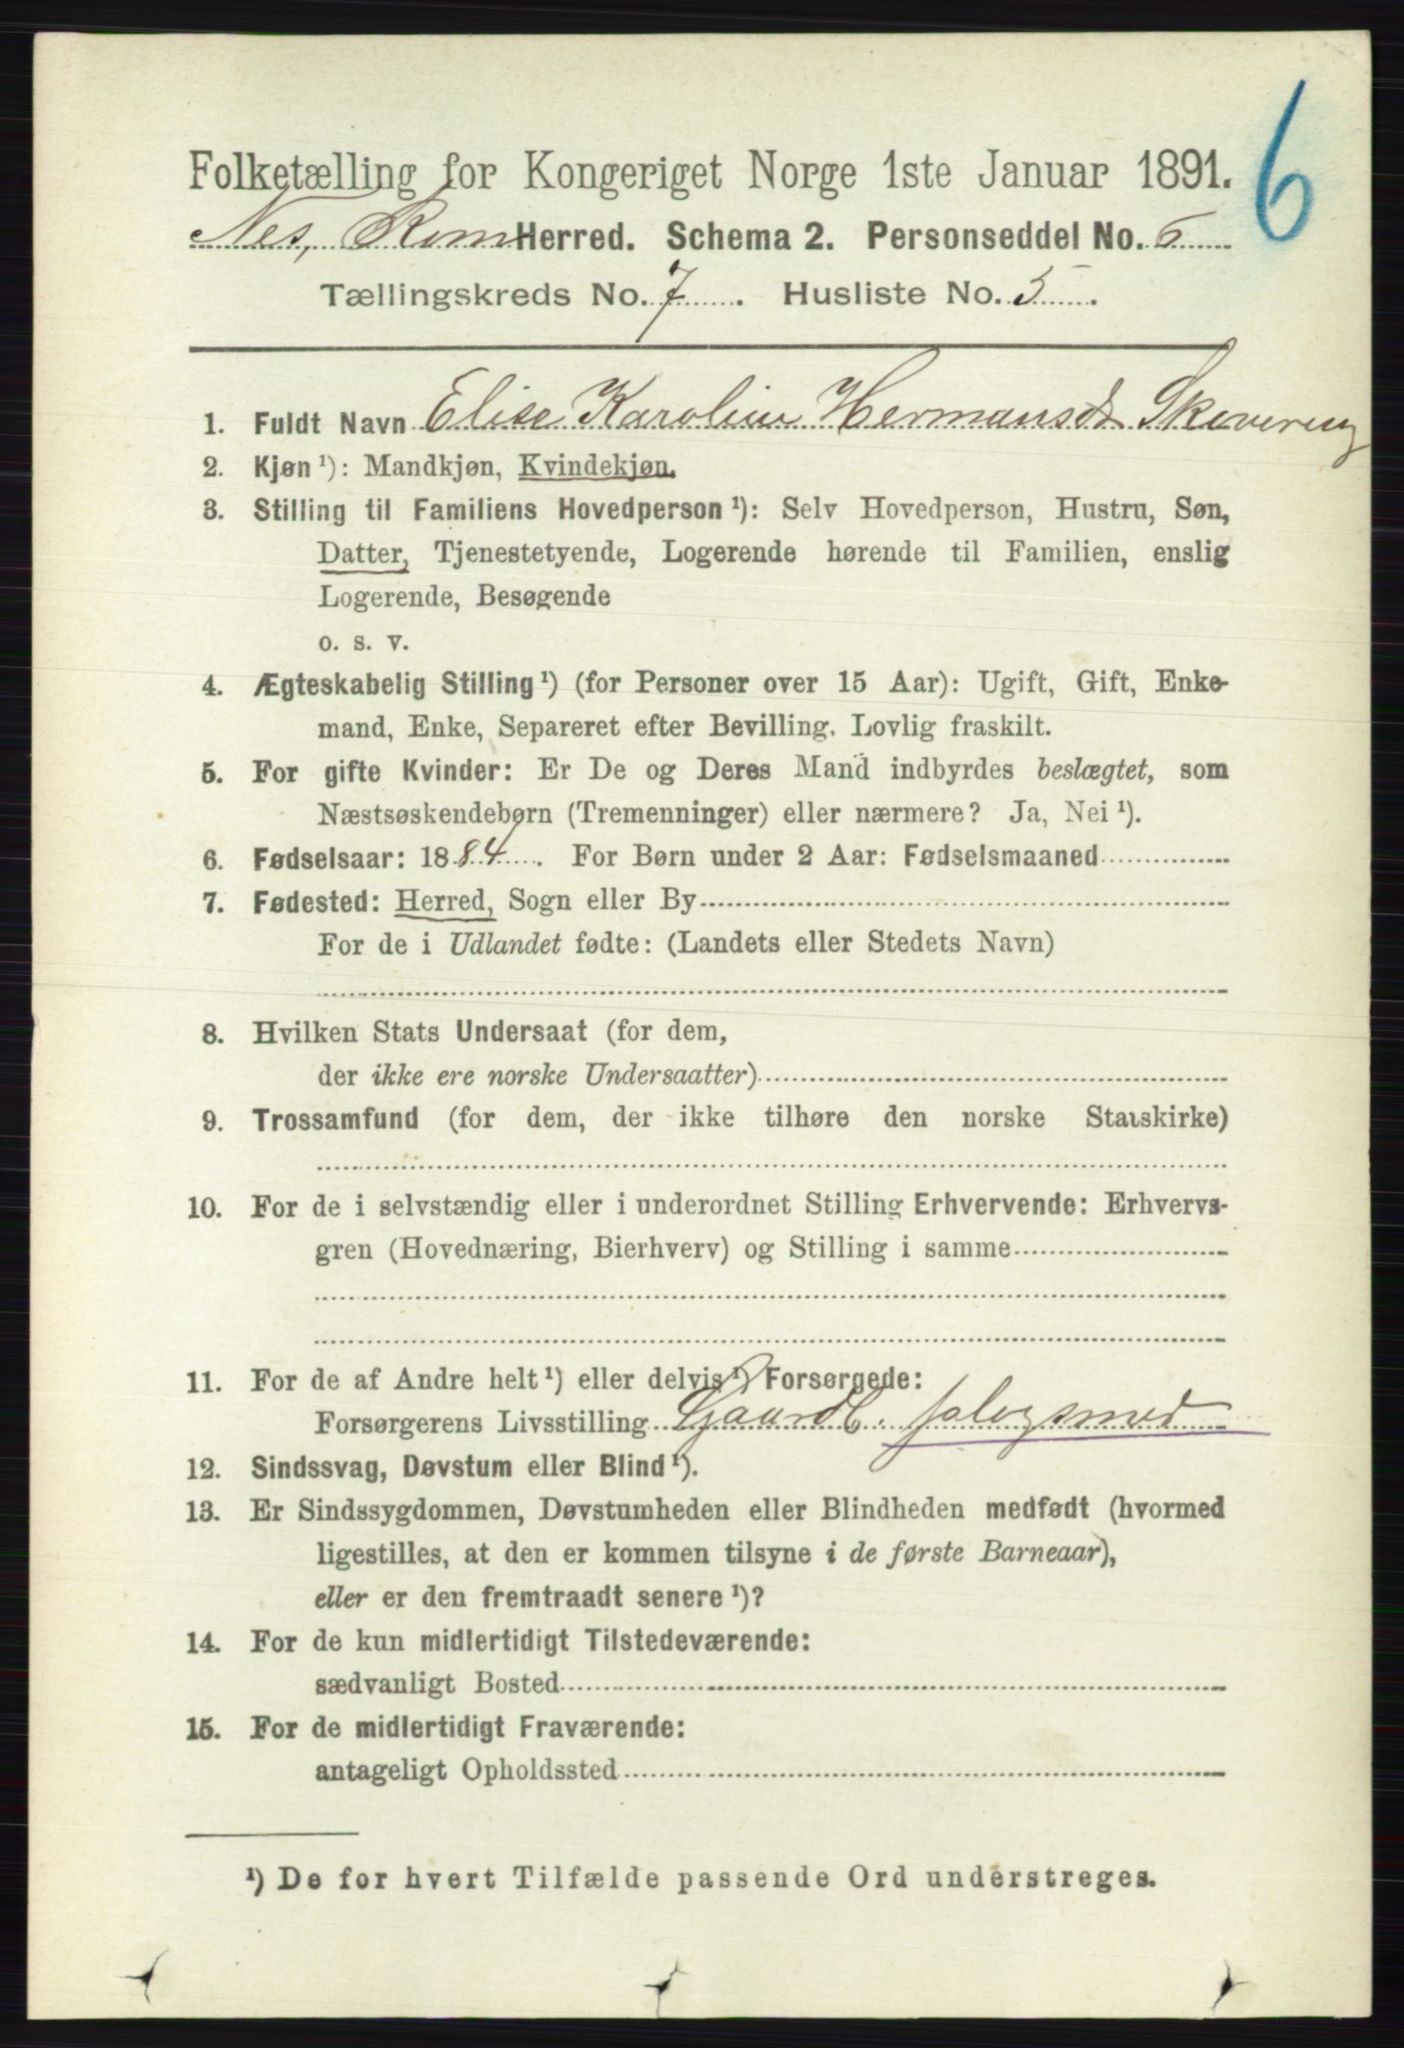 6
Folketælling for Kongeriget Norge 1ste Januar 1891.
Nes, Rom Herred. Schema 2. Personseddel No. 6
Tællingskreds No. 7. Husliste No. 5.
1. Fuldt Navn Elise Karoline Hermansdt
2. Kjøn ¹): Mandkjøn, Kvindekjøn.
3. Stilling til Familiens Hovedperson ¹): Selv Hovedperson, Hustru, Søn,
Datter, Tjenestetyende, Logerende hørende til Familien, enslig
Logerende, Besøgende
o. s. v.
4. Ægteskabelig Stilling ¹) (for Personer over 15 Aar): Ugift, Gift, Enke-
mand, Enke, Separeret efter Bevilling. Lovlig fraskilt.
5. For gifte Kvinder: Er De og Deres Mand indbyrdes beslægtet, som
Næstsøskendebørn (Tremenninger) eller nærmere? Ja, Nei ¹).
6. Fødselsaar: 1884. For Børn under 2 Aar: Fødselsmaaned
7. Fødested: Herred, Sogn eller By
For de i Udlandet fødte: (Landets eller Stedets Navn)
8. Hvilken Stats Undersaat (for dem,
der ikke ere norske Undersaatter)
9. Trossamfund (for dem, der ikke tilhøre den norske Statskirke)
10. For de i selvstændig eller i underordnet Stilling Erhvervende: Erhvervs-
gren (Hovednæring, Bierhverv) og Stilling i samme
11. For de af Andre helt ¹) eller delvis ¹) Forsørgede:
Forsørgerens Livsstilling Gaardb.
12. Sindssvag, Døvstum eller Blind ¹).
13. Er Sindssygdommen, Døvstumheden eller Blindheden medfødt (hvormed
ligestilles, at den er kommen tilsyne i de første Barneaar),
eller er den fremtraadt senere ¹)?
14. For de kun midlertidigt Tilstedeværende:
sædvanligt Bosted
15. For de midlertidigt Fraværende:
antageligt Opholdssted
¹) De for hvert Tilfælde passende Ord understreges.